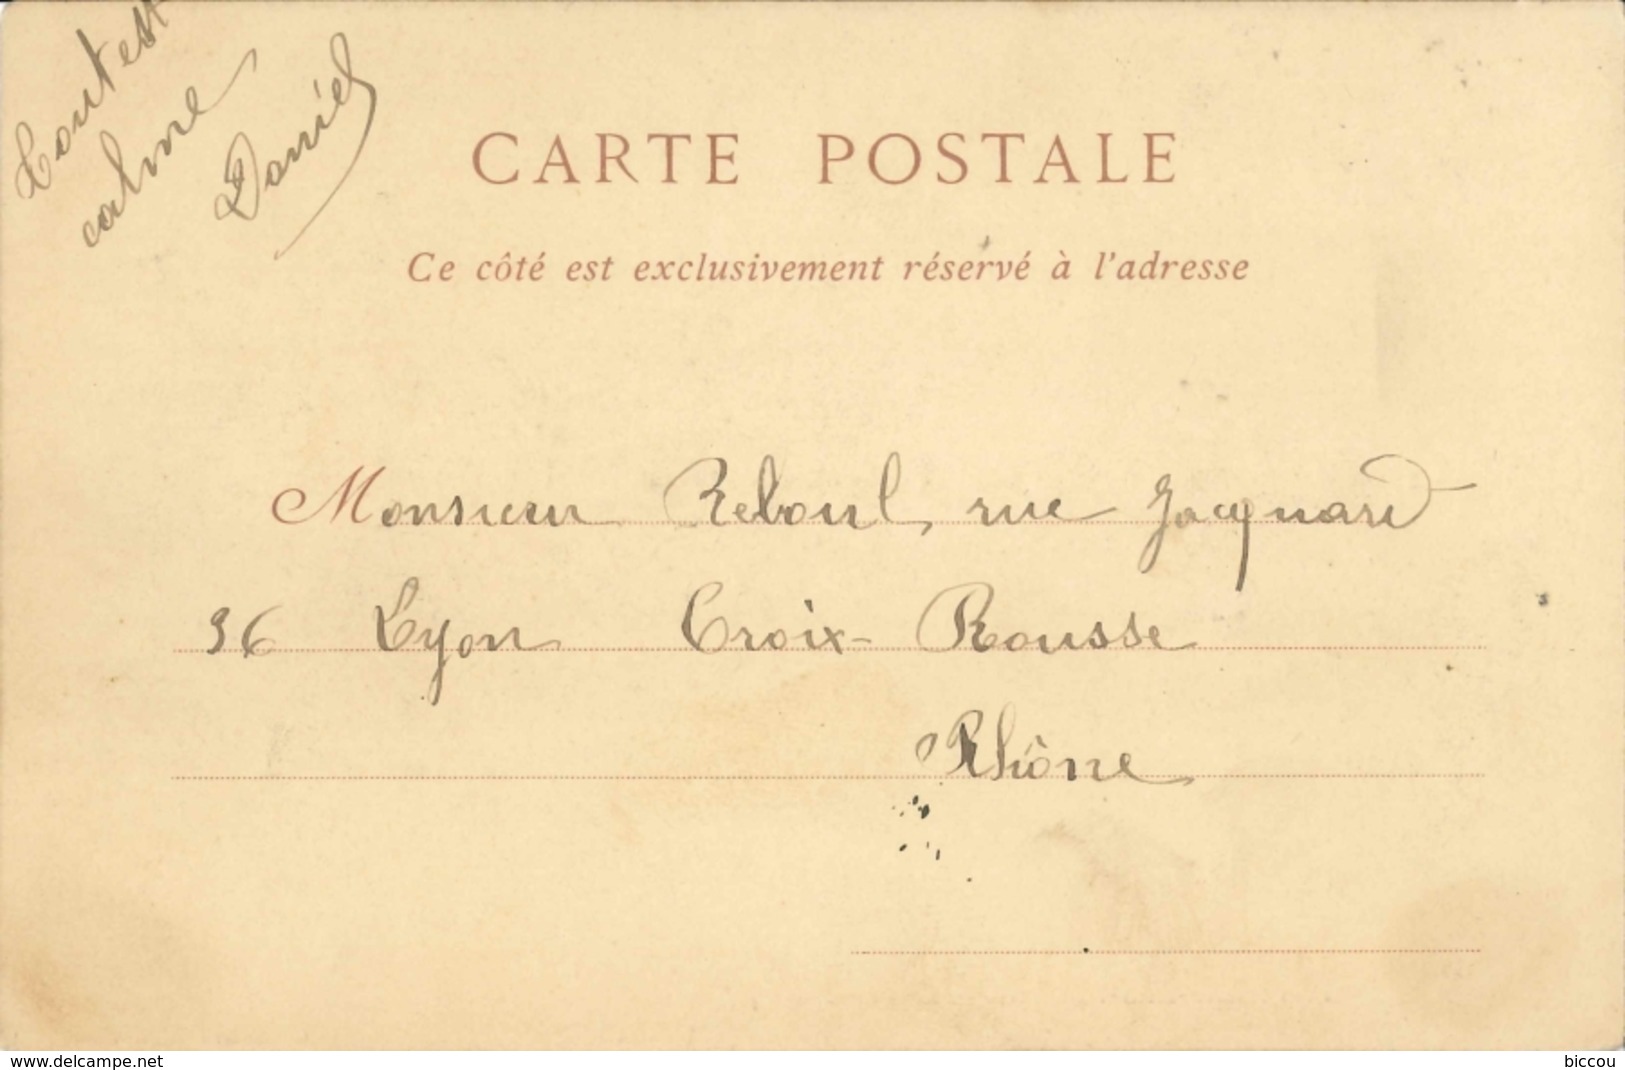 Tout est
calme
Daniel
CARTE POSTALE
Ce côté est exclusivement réservé à l'adresse
Monsieur Reboul, rue Jacquard
36 Lyon Croix-Rousse
Rhône
www.delcampe.net
biccou